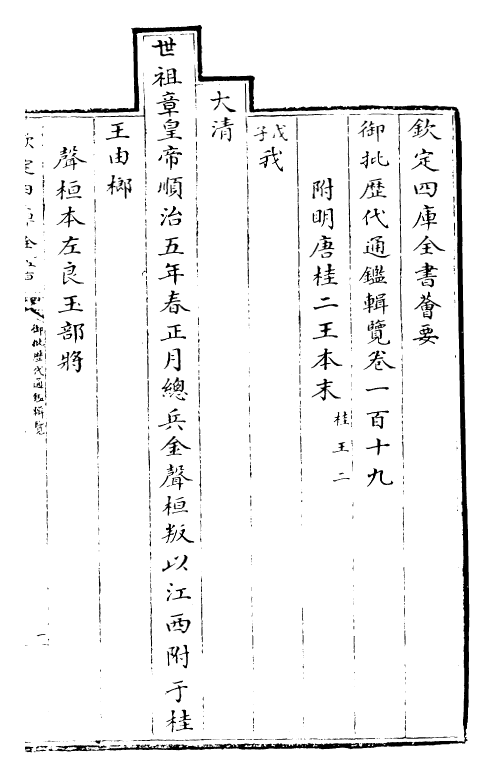 欽定四庫全書薈要
御批歷代通鑑輯覽卷一百十九
附明唐桂二王本末桂王二
戊子我
大清
世祖章皇帝順治五年春正月總兵金聲桓叛以江西附于桂
王由榔
聲桓本左良玉部將
御批歷代通鑑輯覽
一